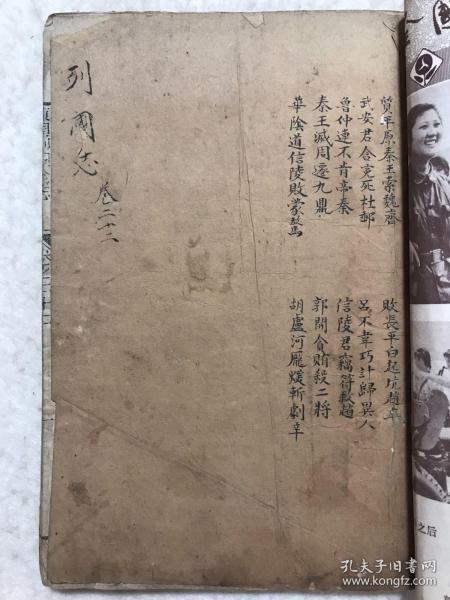 列國志
卷二十二
質平原秦王索魏齊
敗長平白起坑趙卒
武安君含冤死杜郵
呂不韋巧計歸異人
魯仲連不肯帝秦
信陵君竊符救趙
秦王滅周遷九鼎
郭開貪賄殺二將
華陰道信陵敗蒙驁
胡盧河龐煖斬劇辛
之后
孔夫子旧书网
www.kongfz.com